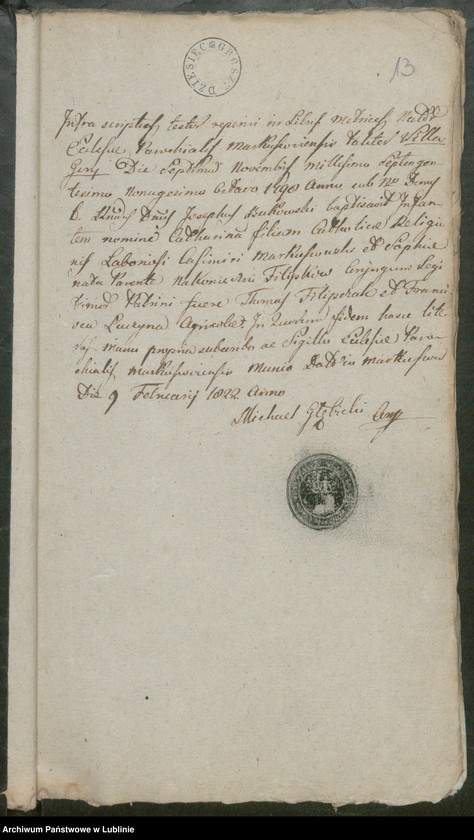 DZIESIĘC GROSZ
13
Infra scriptus testor reperiri in Libris Metrices Nator
Ecclesiae Parochialis Markuszoviensis taliter Villa
Gory Die Septima Novembris Millesimo Septingen
tesimo Nonagesimo Octavo 1798 Anno sub No
Josephus Bukowski baptisavit Infan
tem nomine Catharina filiam Catholicae Religio
nis Laboriosi Casimiri Markuszewski et Sophiae
nata Parente Filipkow Conjugum Legi
timor Patrini fuere Thomas Filipczak et Franci
sca Luczyna Agricolae. In Quorum fidem hasce lite
ras manu propria subscribo ac Sigillo Ecclesiae Paro
chialis Markuszoviensis munio Datt in Markuszow
Die 9 Februarij 1822 Anno
Michael Głębicki
Archiwum Państwowe w Lublinie